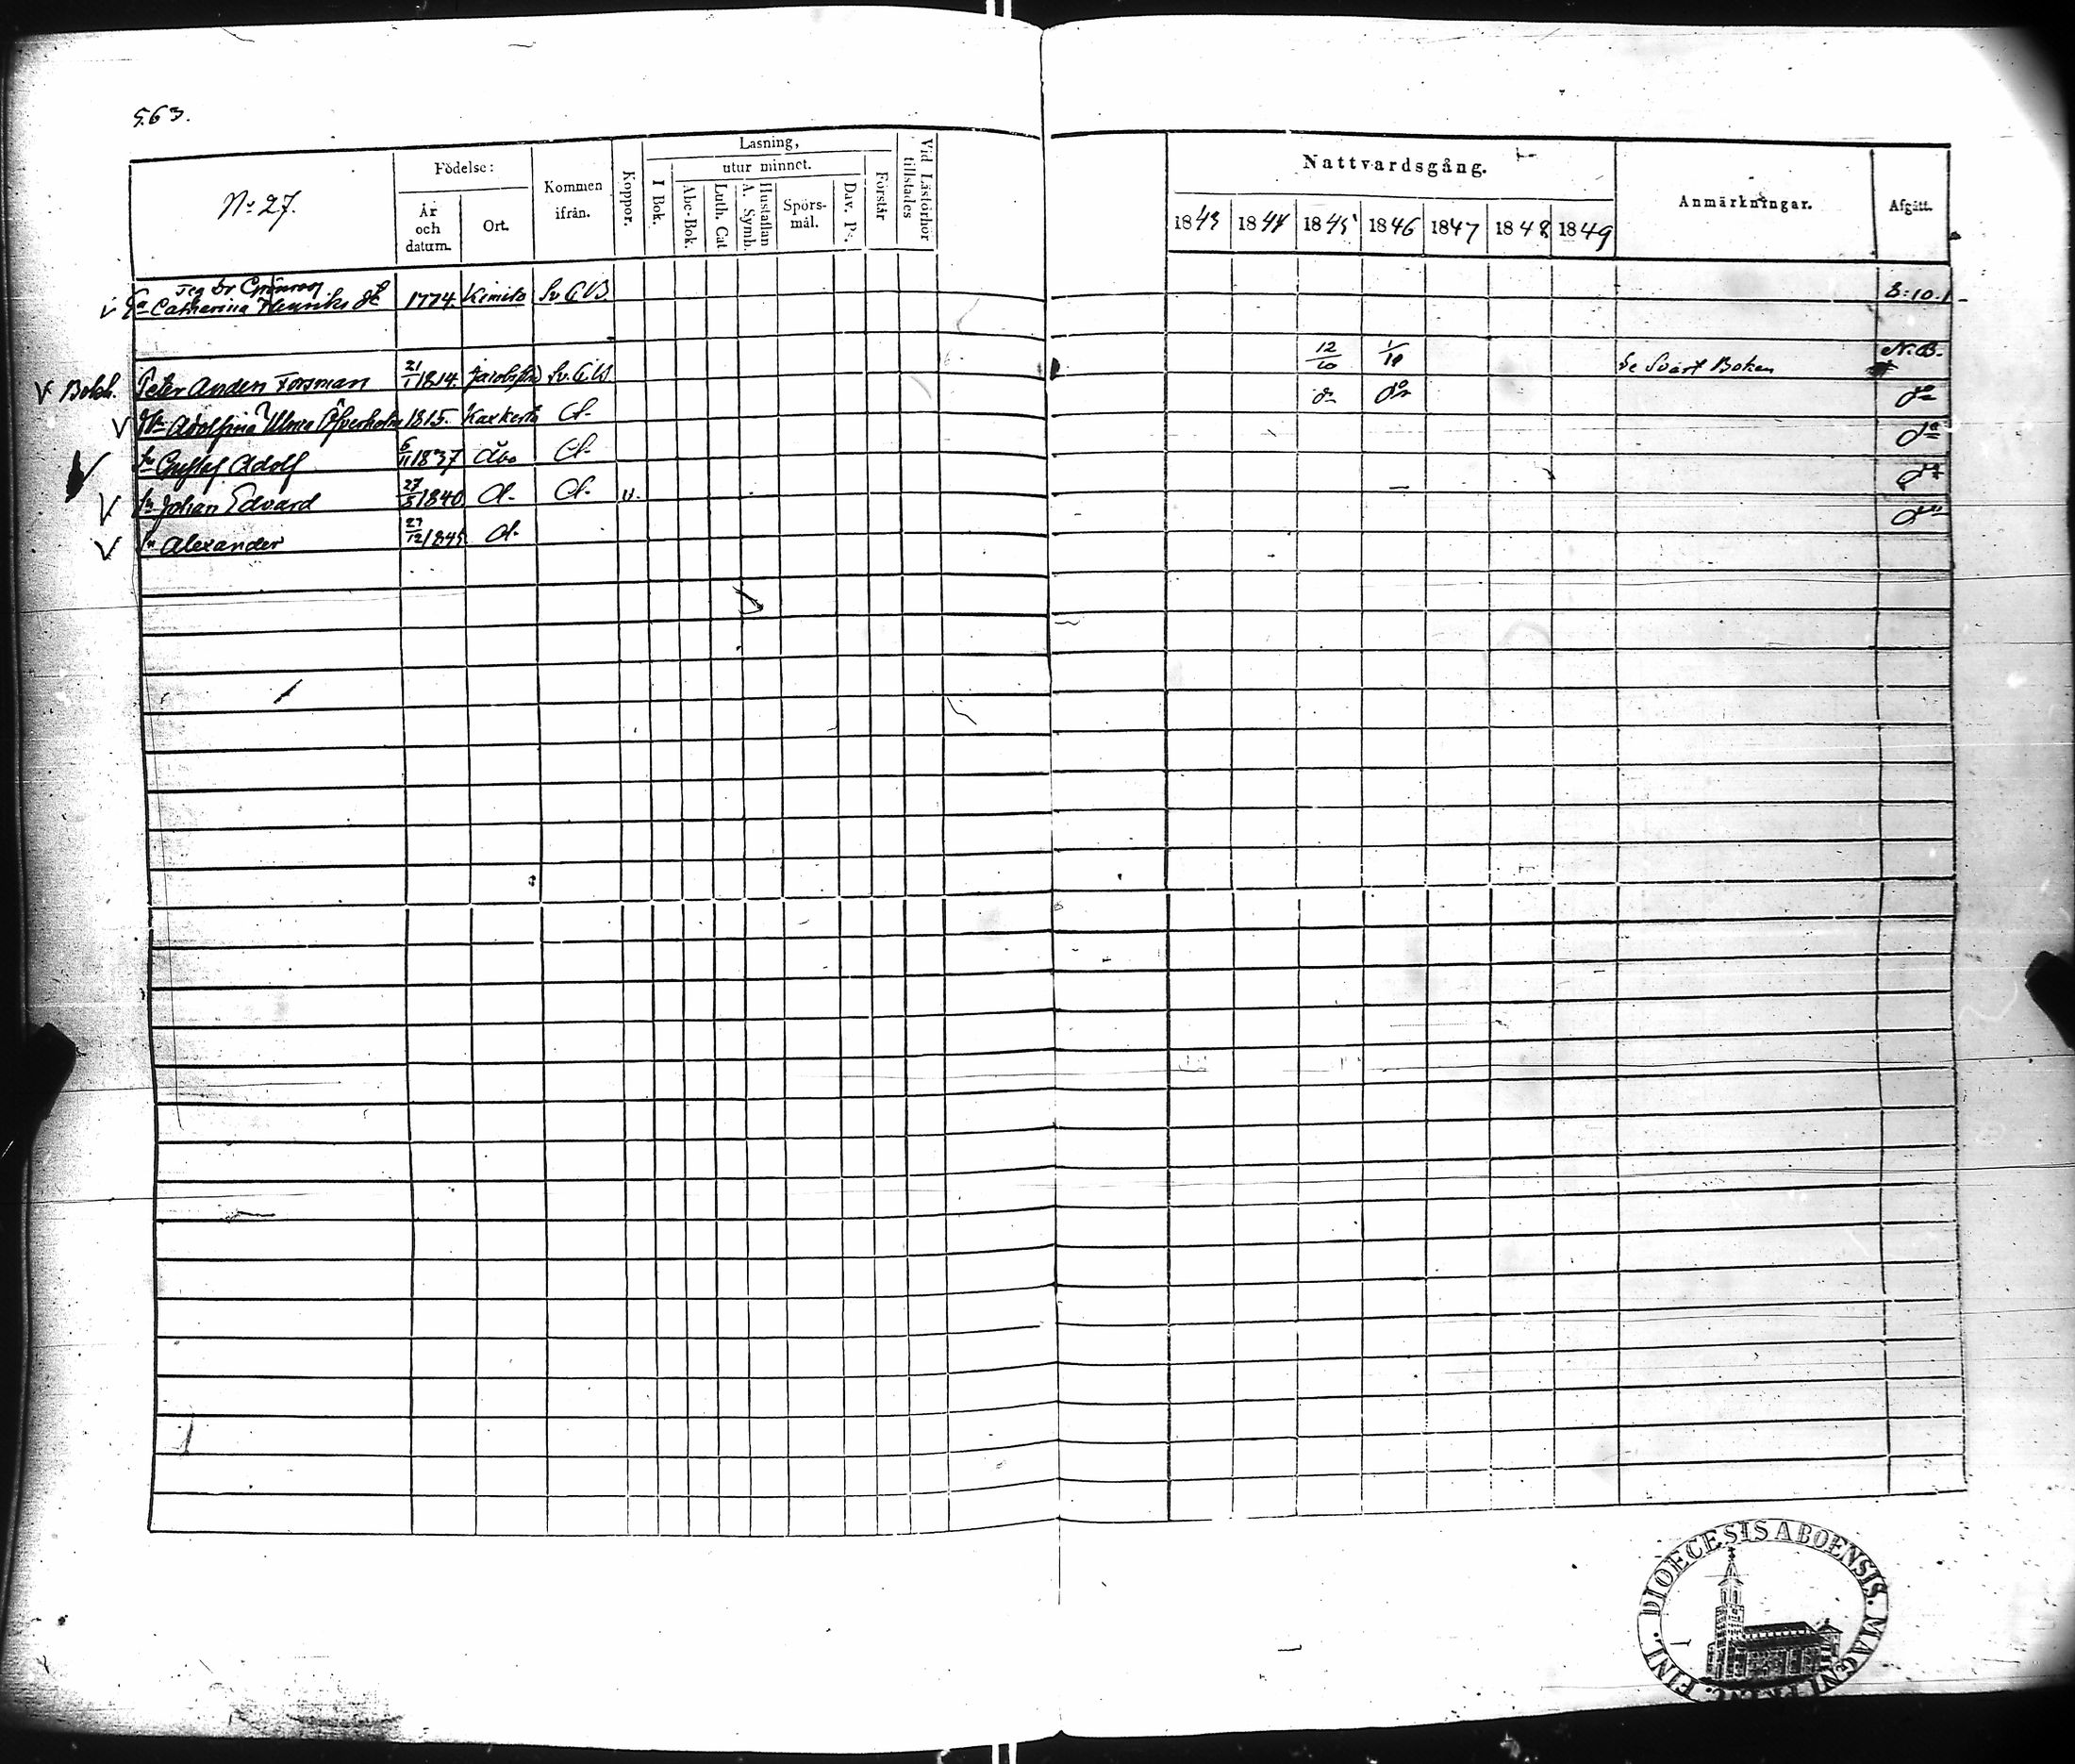 563.
No 27.
Födelse:
År och datum.
Ort.
Kommen ifrån.
Koppor.
Läsning,
utur minnet.
I Bok.
Abc-Bok.
Luth. Cat
Hustaflan A. Symb.
Spörs-mål.
Dav. Ps.
Förstår
Vid Läsförhör tillstades
Nattvardsgång.
1843 1844 1845 1846 1847 1848 1849
Anmärkningar.
Afgått.
Catharina Henriks dr 1774. Kimito Sv. C.B. 8:10.1
V Bokh. Peter Anders Forsman 21/1 1814. Sv. C.B. 12/10 1/10 Se Svart Boken N.B.
V Adolfina Ulrica 1815. do do do
V Sn Gustaf Adolf 6/11 1837 Åbo do
V Sn Johan Edvard 27/5 1840 v.
V Sn Alexander 27/12 1845
DIOECESIS ABOENSIS. MAGNI PRINC. FINL.